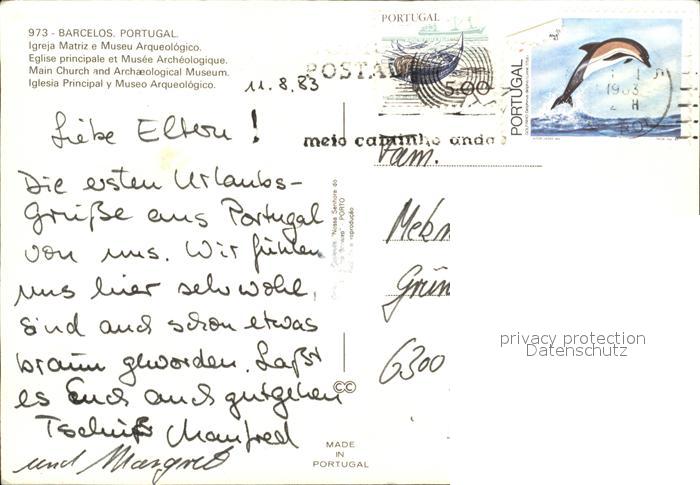 973 - BARCELOS. PORTUGAL.
Igreja Matriz e Museu Arqueológico.
Eglise principale et Musée Archéologique.
Main Church and Archæological Museum.
Iglesia Principal y Museo Arqueológico.
11.8.83
Liebe Eltern!
Die ersten Urlaubs-
Grüße aus Portugal
von uns. Wir fühlen
uns hier sehr wohl,
sind auch schon etwas
braun geworden. Laßt
es Euch auch gutgehen
Tschüß Manfred
und Margret
PORTUGAL
5.00
PORTUGAL
POSTAL
meio caminho anda
Fam.
Grün
6300
privacy protection
Datenschutz
PORTO
MADE
IN
PORTUGAL